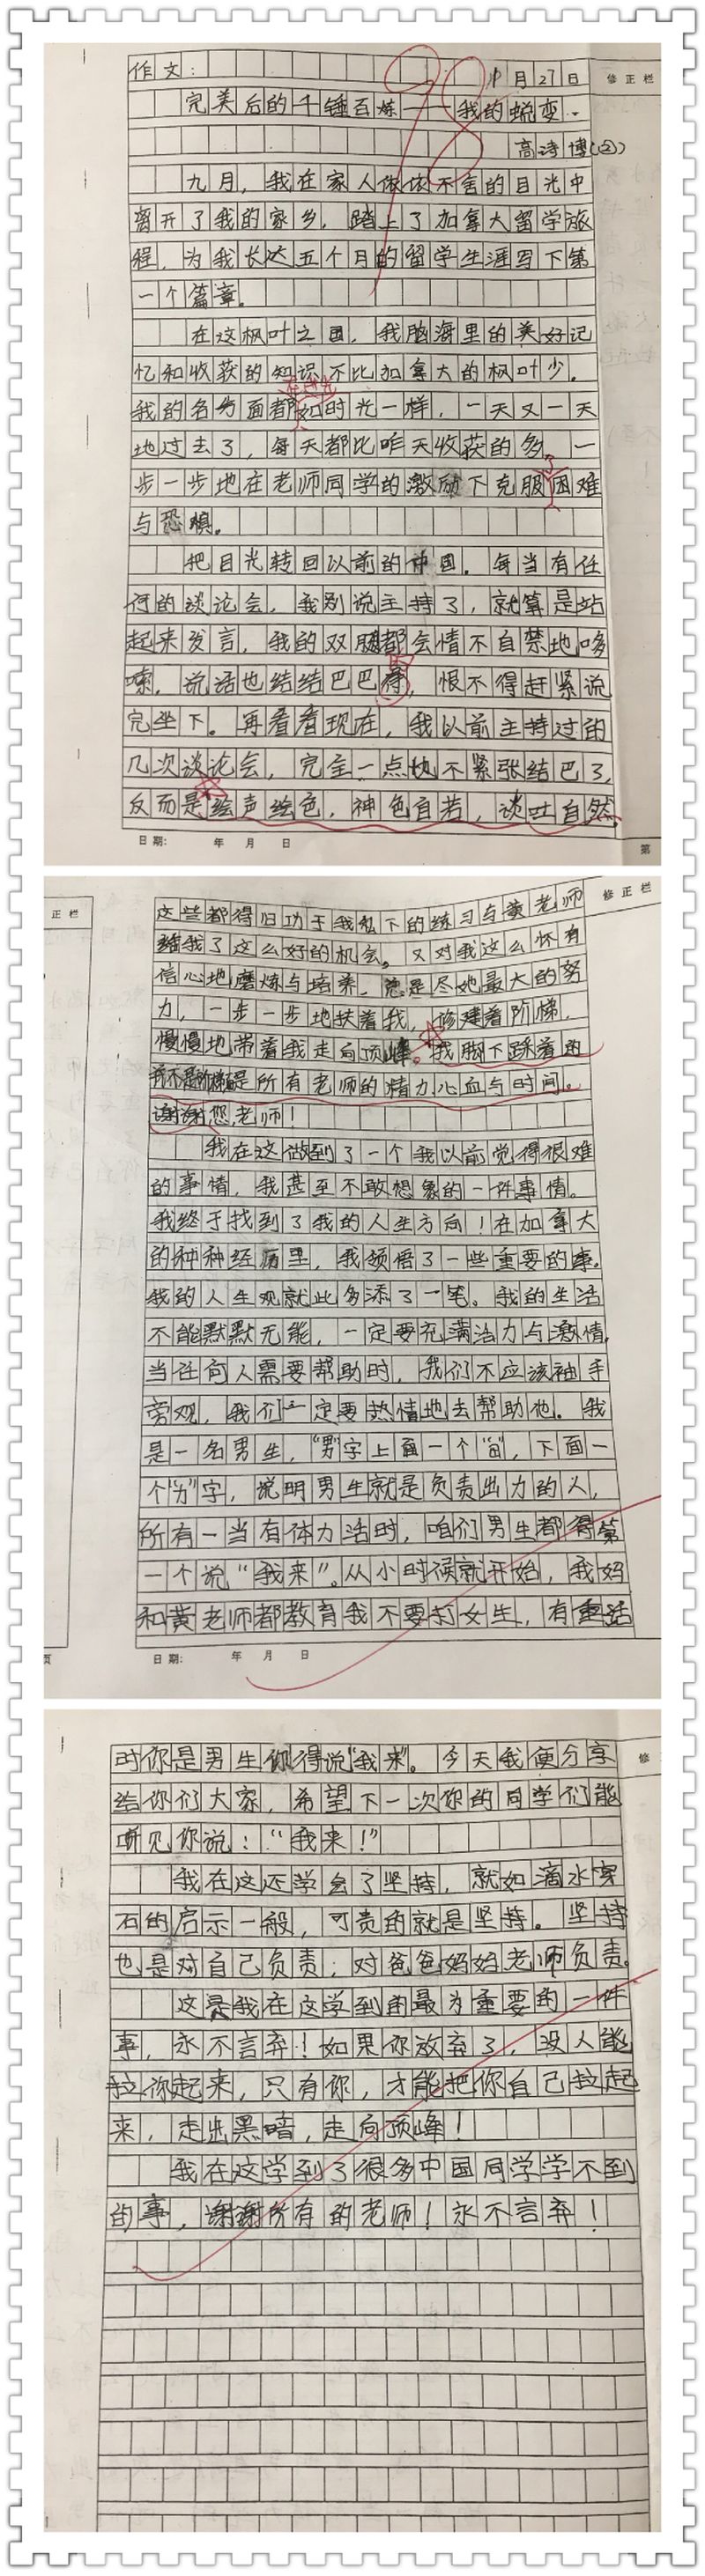 作文：
月27日
修正栏
完美后的千锤百炼——我的蜕变.
高诗博
九月，我在家人依依不舍的目光中
离开了我的家乡，踏上了加拿大留学旅
程，为我长达五个月的留学生涯写下第
一个篇章。
在这枫叶之国，我脑海里的美好记
忆和收获的知识不比加拿大的枫叶少。
我的各方面都如时光一样，一天又一天
地过去了，每天都比昨天收获的多，一
步一步地在老师同学的激励下克服困难
与恐惧。
把目光转回以前的中国，每当有任
何的谈论会，我别说主持了，就算是站
起来发言，我的双腿都会情不自禁地哆
嗦，说话也结结巴巴得，恨不得赶紧说
完坐下。再看看现在，我以前主持过的
几次谈论会，完全一点也不紧张结巴了，
反而是绘声绘色，神色自若，谈吐自然，
日期： 年 月 日
第
正栏
修正栏
这些都得归功于我私下的练习与黄老师
给我了这么好的机会，又对我这么怀有
信心地磨炼与培养，总是尽她最大的努
力，一步一步地扶着我，修建着阶梯，
慢慢地带着我走向顶峰。我脚下踩着的
并不是阶梯而是所有老师的精力心血与时间。
谢谢您，老师！
我在这做到了一个我以前觉得很难
的事情，我甚至不敢想象的一件事情。
我终于找到了我的人生方向！在加拿大
的种种经历里，我领悟了一些重要的事。
我的人生观就此多添了一笔。我的生活
不能默默无能，一定要充满活力与激情。
当任何人需要帮助时，我们不应该袖手
旁观，我们一定要热情地去帮助他。我
是一名男生，“男”字上面一个“田”，下面一
个“力”字，说明男生就是负责出力的人，
所有一当有体力活时，咱们男生都得第
一个说“我来”。从小时候就开始，我妈
和黄老师都教育我不要打女生，有重活
页
日期： 年 月 日
时你是男生你得说“我来”。今天我便分享
修
给你们大家，希望下一次你的同学们能
听见你说：“我来！”
我在这还学会了坚持，就如滴水穿
石的启示一般，可贵的就是坚持。坚持
也是对自己负责；对爸爸妈妈老师负责。
这是我在这学到的最为重要的一件
事，永不言弃！如果你放弃了，没人能
拉你起来，只有你，才能把你自己拉起
来，走出黑暗，走向顶峰！
我在这学到了很多中国同学学不到
的事，谢谢所有的老师！永不言弃！